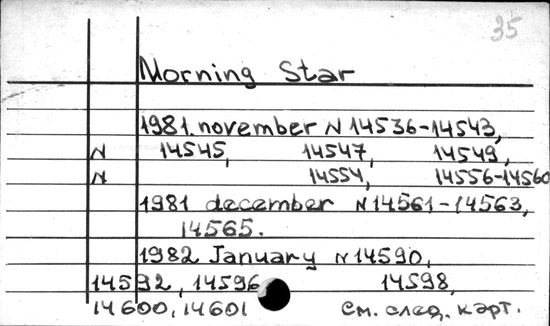 35
Morning Star
1981. november N 14536-14543,
N 14545, 14547, 14549,
N 14554, 14556-14560
1981 december N 14561-14563,
14565.
1982 January N 14590,
14592, 14596 14598,
14600, 14601 См. след. карт.